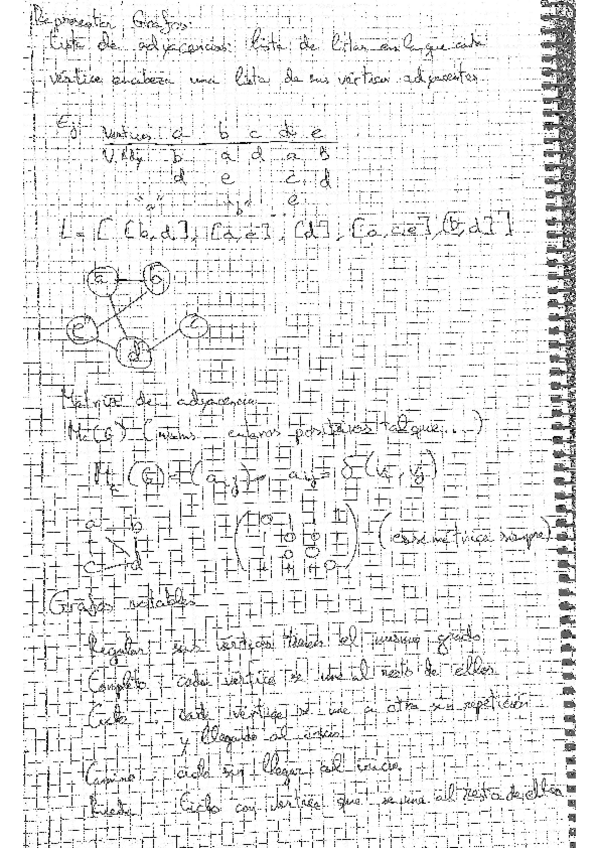 Representar Grafos:
Lista de adyacencias: lista de listas en la que cada
vértice encabeza una lista de sus vértices adyacentes.
Ej: Vértices a b c d e
V. Ady b a d a b
d e c d
e
"a" "b"
L = [ [b,d], [a,e], [d], [a,c,e], [b,d] ]
a b
e c
d
Matriz de adyacencia
(nums enteros positivos tal que....)
a b
c d
(es simétrica siempre)
Grafos notables
Regular: sus vértices tienen el mismo grado
Completo: cada vértice se une al resto de ellos
Ciclo: cada vértice se une a otro sin repetición
y llegando al inicio
Camino: ciclo sin llegar al inicio
Rueda: Ciclo con vértice que se une al resto de ellos